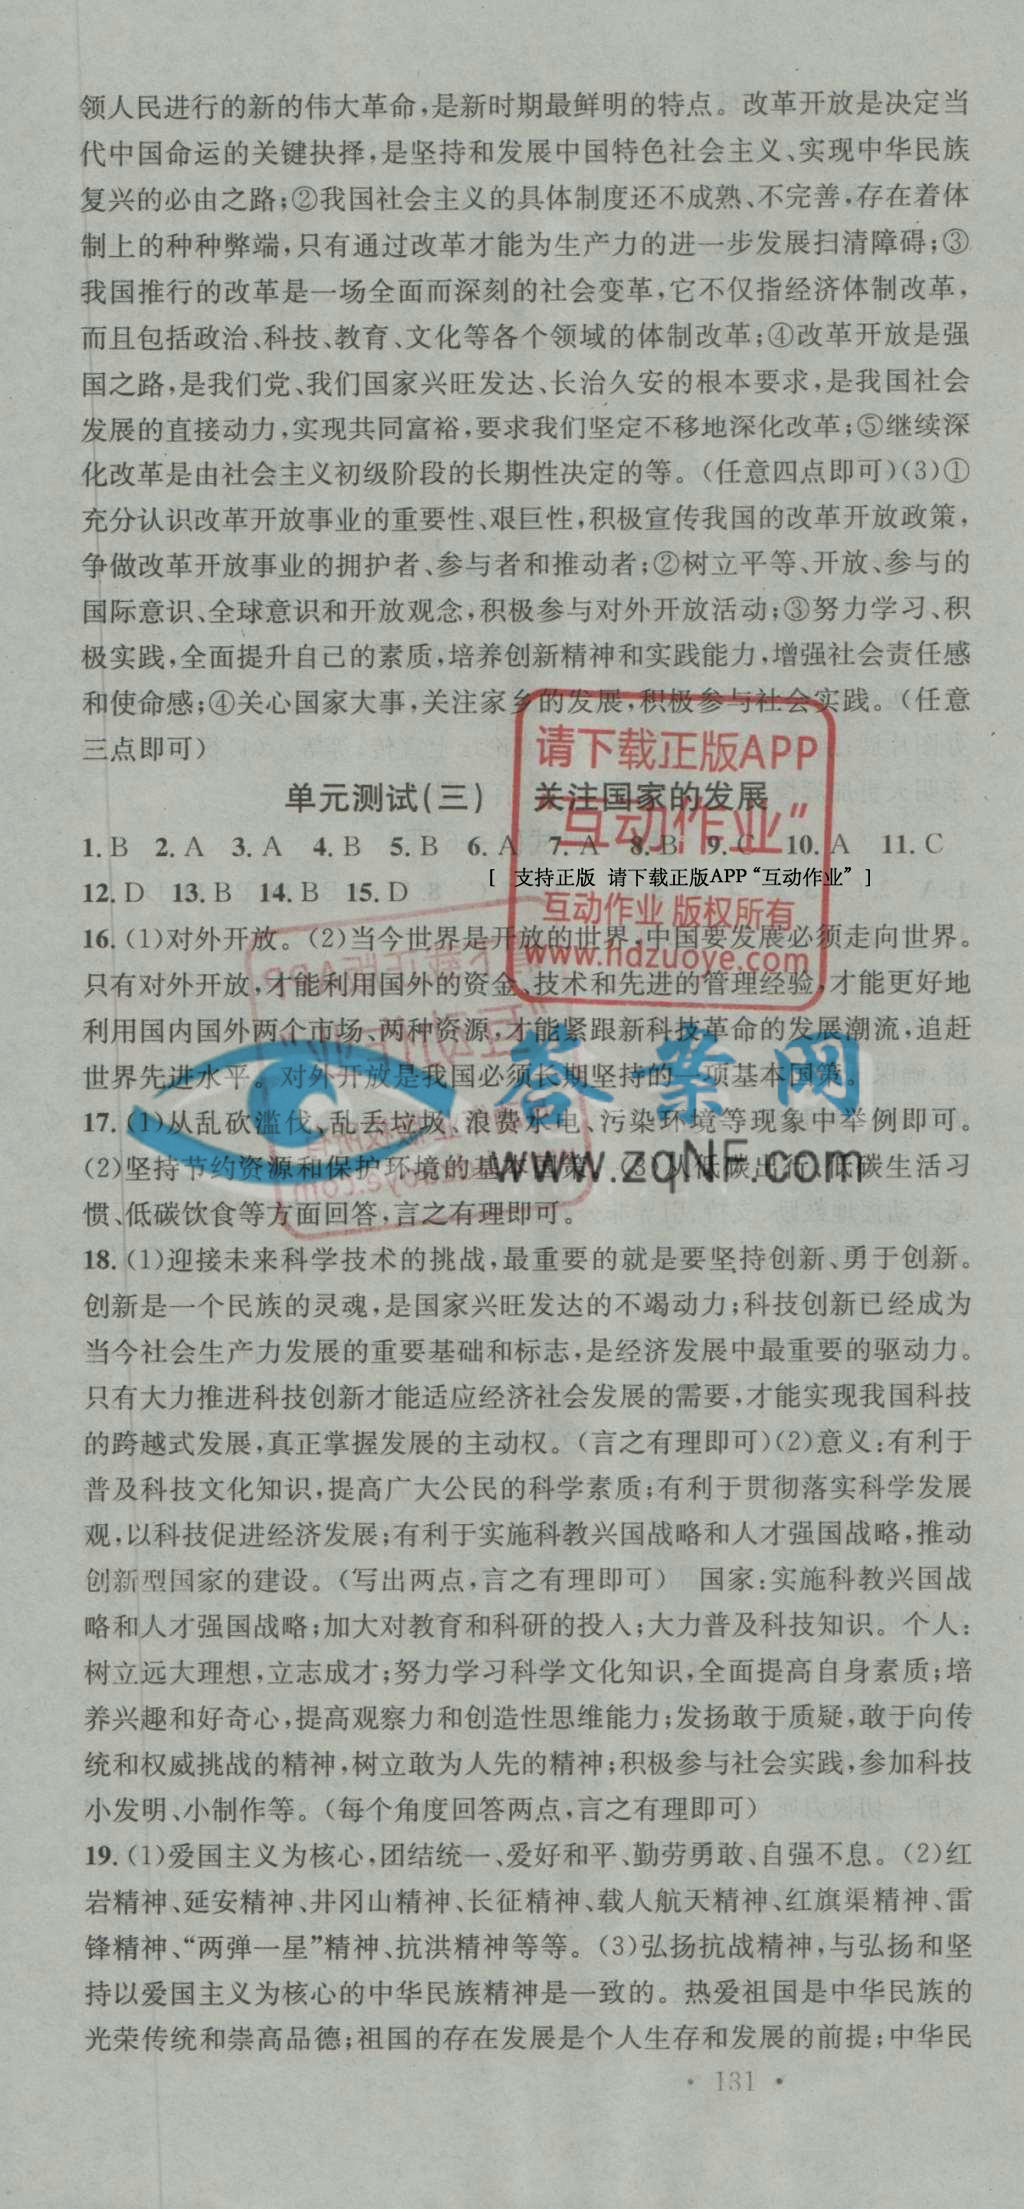 领人民进行的新的伟大革命,是新时期最鲜明的特点。改革开放是决定当
代中国命运的关键抉择,是坚持和发展中国特色社会主义、实现中华民族
复兴的必由之路;②我国社会主义的具体制度还不成熟、不完善,存在着体
制上的种种弊端,只有通过改革才能为生产力的进一步发展扫清障碍;③
我国推行的改革是一场全面而深刻的社会变革,它不仅指经济体制改革,
而且包括政治、科技、教育、文化等各个领域的体制改革;④改革开放是强
国之路,是我们党、我们国家兴旺发达、长治久安的根本要求,是我国社会
发展的直接动力,实现共同富裕,要求我们坚定不移地深化改革;⑤继续深
化改革是由社会主义初级阶段的长期性决定的等。(任意四点即可)(3)①
充分认识改革开放事业的重要性、艰巨性,积极宣传我国的改革开放政策,
争做改革开放事业的拥护者、参与者和推动者;②树立平等、开放、参与的
国际意识、全球意识和开放观念,积极参与对外开放活动;③努力学习、积
极实践,全面提升自己的素质,培养创新精神和实践能力,增强社会责任感
和使命感;④关心国家大事,关注家乡的发展,积极参与社会实践。(任意
三点即可)
单元测试(三) 关注国家的发展
1. B 2. A 3. A 4. B 5. B 6. A 7. A 8. B 9. C 10. A 11. C
12. D 13. B 14. B 15. D
16. (1)对外开放。(2)当今世界是开放的世界,中国要发展必须走向世界。
只有对外开放,才能利用国外的资金、技术和先进的管理经验,才能更好地
利用国内国外两个市场、两种资源,才能紧跟新科技革命的发展潮流,追赶
世界先进水平。对外开放是我国必须长期坚持的一项基本国策。
17. (1)从乱砍滥伐、乱丢垃圾、浪费水电、污染环境等现象中举例即可。
(2)坚持节约资源和保护环境的基本国策。(3)从低碳出行、低碳生活习
惯、低碳饮食等方面回答,言之有理即可。
18. (1)迎接未来科学技术的挑战,最重要的就是要坚持创新、勇于创新。
创新是一个民族的灵魂,是国家兴旺发达的不竭动力;科技创新已经成为
当今社会生产力发展的重要基础和标志,是经济发展中最重要的驱动力。
只有大力推进科技创新才能适应经济社会发展的需要,才能实现我国科技
的跨越式发展,真正掌握发展的主动权。(言之有理即可)(2)意义:有利于
普及科技文化知识,提高广大公民的科学素质;有利于贯彻落实科学发展
观,以科技促进经济发展;有利于实施科教兴国战略和人才强国战略,推动
创新型国家的建设。(写出两点,言之有理即可) 国家:实施科教兴国战
略和人才强国战略;加大对教育和科研的投入;大力普及科技知识。个人:
树立远大理想,立志成才;努力学习科学文化知识,全面提高自身素质;培
养兴趣和好奇心,提高观察力和创造性思维能力;发扬敢于质疑,敢于向传
统和权威挑战的精神,树立敢为人先的精神;积极参与社会实践,参加科技
小发明、小制作等。(每个角度回答两点,言之有理即可)
19. (1)爱国主义为核心,团结统一、爱好和平、勤劳勇敢、自强不息。(2)红
岩精神、延安精神、井冈山精神、长征精神、载人航天精神、红旗渠精神、雷
锋精神、“两弹一星”精神、抗洪精神等等。(3)弘扬抗战精神,与弘扬和坚
持以爱国主义为核心的中华民族精神是一致的。热爱祖国是中华民族的
光荣传统和崇高品德;祖国的存在发展是个人生存和发展的前提;中华民
· 131 ·
请下载正版APP
“互动作业”
[ 支持正版 请下载正版APP“互动作业” ]
互动作业 版权所有
www.hdzuoye.com
答案网
www.zqNF.com